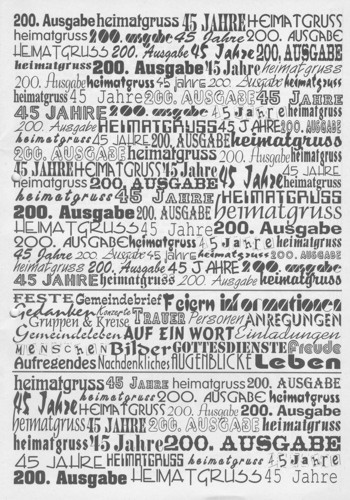 200. Ausgabe heimatgruss 45 JAHRE HEIMATGRUSS
heimatgruss 200. ausgabe 45 Jahre 200. AUSGABE
HEIMATGRUSS 200. Ausgabe 45 Jahre 200. AUSGABE
heimatgruss 200. Ausgabe 45 Jahre heimatgruss
200. Ausgabe heimatgruss 45 jahre 200. Ausgabe heimatgruss
heimatgruss 45 Jahre 200. AUSGABE 45 JAHRE
45 JAHRE 200. ausgabe 45 Jahre HEIMATGRUSS
200. Ausgabe HEIMATGRUSS 45 JAHRE 200. AUSGABE
heimatgruss 45 JAHRE 200. AUSGABE heimatgruss
45 JAHRE 200. AUSGABE 200. Ausgabe heimatgruss
45 JAHRE HEIMATGRUSS 200. Ausgabe 45 Jahre
heimatgruss 200. AUSGABE 45 Jahre heimatgruss
heimatgruss 45 JAHRE HEIMATGRUSS
200. Ausgabe 200. AUSGABE heimatgruss
HEIMATGRUSS 45 Jahre 200. Ausgabe
200. AUSGABE heimatgruss 45 Jahre heimatgruss
45 Jahre 200. Ausgabe 45 Jahre heimatgruss 200. AUSGABE
heimatgruss 200. Ausgabe 45 JAHRE 200. ausgabe
45 JAHRE HEIMATGRUSS 200. Ausgabe heimatgruss
FESTE Gemeindebrief Feiern informationen
Gedanken Konzerte
Gruppen & Kreise TRAUER Personen ANREGUNGEN
Gemeindeleben AUF EIN WORT Einladungen
Menschen Bilder GOTTESDIENSTE Freude
Aufregendes Nachdenkliches AUGENBLICKE Leben
heimatgruss 45 JAHRE heimatgruss 200. AUSGABE
45 Jahre heimatgruss 200. AUSGABE heimatgruss
45 Jahre HEIMATGRUSS 200. Ausgabe 200. Ausgabe
heimatgruss 45 JAHRE 200. AUSGABE heimatgruss
heimatgruss 45 Jahre 200. AUSGABE
45 JAHRE HEIMATGRUSS heimatgruss 45 Jahre
200. Ausgabe HEIMATGRUSS 45 Jahre